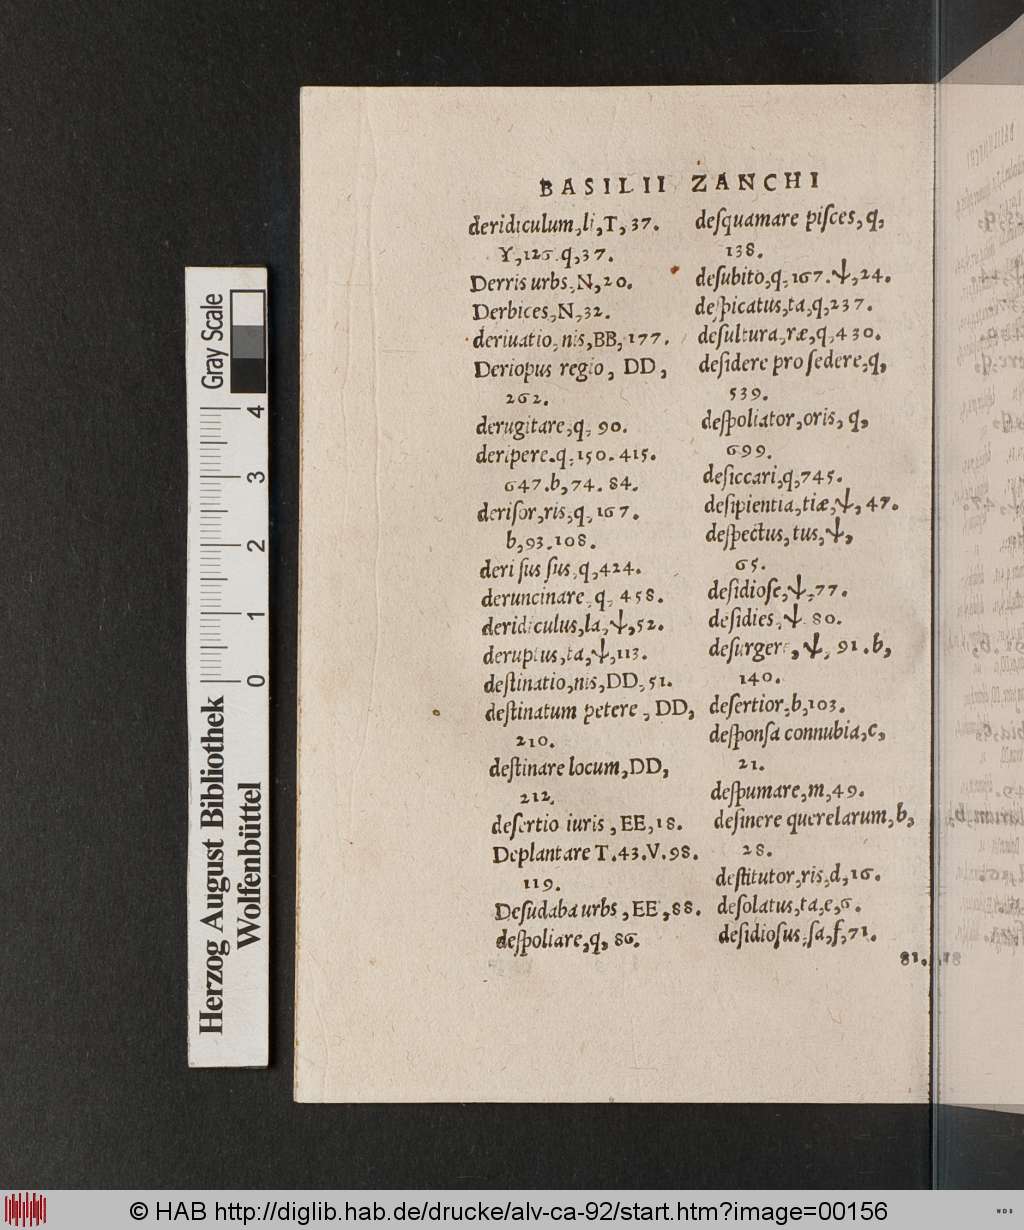 BASILII ZANCHI
deridiculum,li,T,37.
Y,126.q,37.
Derris urbs,N,20.
Derbices,N,32.
deriuatio,nis,BB,177.
Deriopus regio, DD,
262.
derugitare,q, 90.
deripere.q,150.415.
647.b,74.84.
derisor,ris,q,167.
b,93.108.
deri sus sus,q,424.
deruncinare,q, 458.
deridiculus,la,Ψ,52.
deruptus,ta,Ψ,113.
destinatio,nis,DD,51.
destinatum petere, DD,
210.
destinare locum,DD,
212.
desertio iuris, EE,18.
Deplantare T.43.V.98.
119.
Desudaba urbs, EE,88.
despoliare,q, 86.
desquamare pisces,q,
138.
desubito,q,167.Ψ,24.
despicatus,ta,q,237.
desultura,ræ,q,430.
desidere pro sedere,q,
539.
despoliator,oris, q,
699.
desiccari,q,745.
desipientia,tiæ,Ψ, 47.
despectus,tus,Ψ,
65.
desidiose,Ψ,77.
desidies,Ψ. 80.
desurgere,Ψ, 91.b,
140.
desertior,b,103.
desponsa connubia,c,
21.
despumare,m,49.
desinere querelarum,b,
28.
destitutor,ris,d,16.
desolatus,ta,e,6.
desidiosus,sa,f,71.
81.
Herzog August Bibliothek
Wolfenbüttel
0 1 2 3 4
Gray Scale
© HAB http://diglib.hab.de/drucke/alv-ca-92/start.htm?image=00156